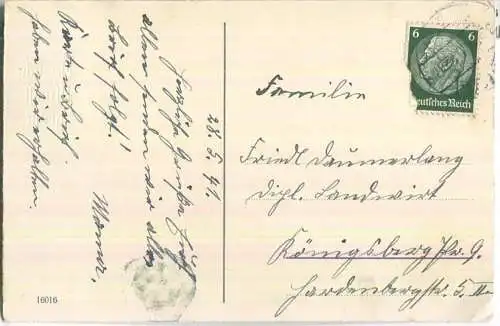 28. 5. 41.
Herzliche Grüße Euch
allen senden wir alle
Brief folgt!
Mama.
Karte u. Brief
haben wir erhalten.
16016
6 6
Deutsches Reich
Familie
Friedl Daumerlang
dipl. Landwirt
Königsberg/Pr. 9.
Hardenbergstr. 5. III